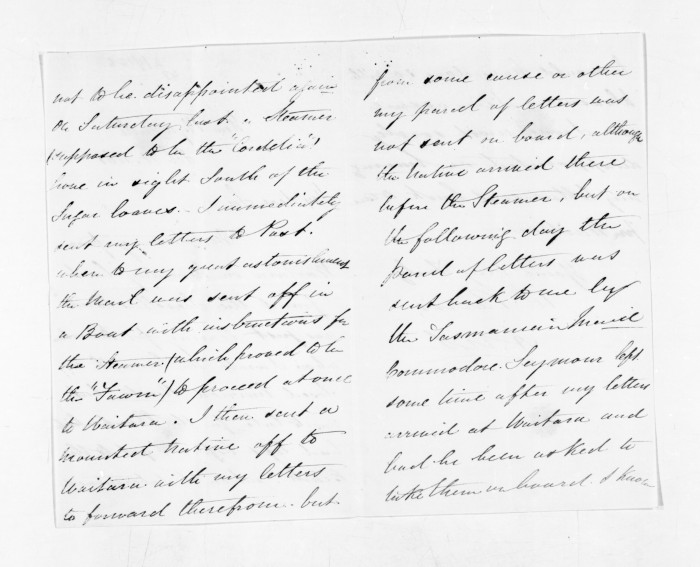 not to be disappointed again
On Saturday last a Steamer
(supposed to be the "Cordelia")
hove in sight South of the
Sugar loaves. - I immediately
sent my letters to Post.
when to my great astonishment
the Mail was sent off in
a Boat with instructions for
the Steamer (which proved to be
the "Fawn") to proceed at once
to Waitara. I then sent a
mounted Native off to
Waitara with my letters
to forward therefrom. but
from some cause or other
my parcel of letters was
not sent on board, although
the Native arrived there
before the Steamer, but on
the following day the
parcel of letters was
sent back to me by
the Tasmanian Maid
Commodore Seymour left
some time after my letters
arrived at Waitara and
had he been asked to
take them on board. I know